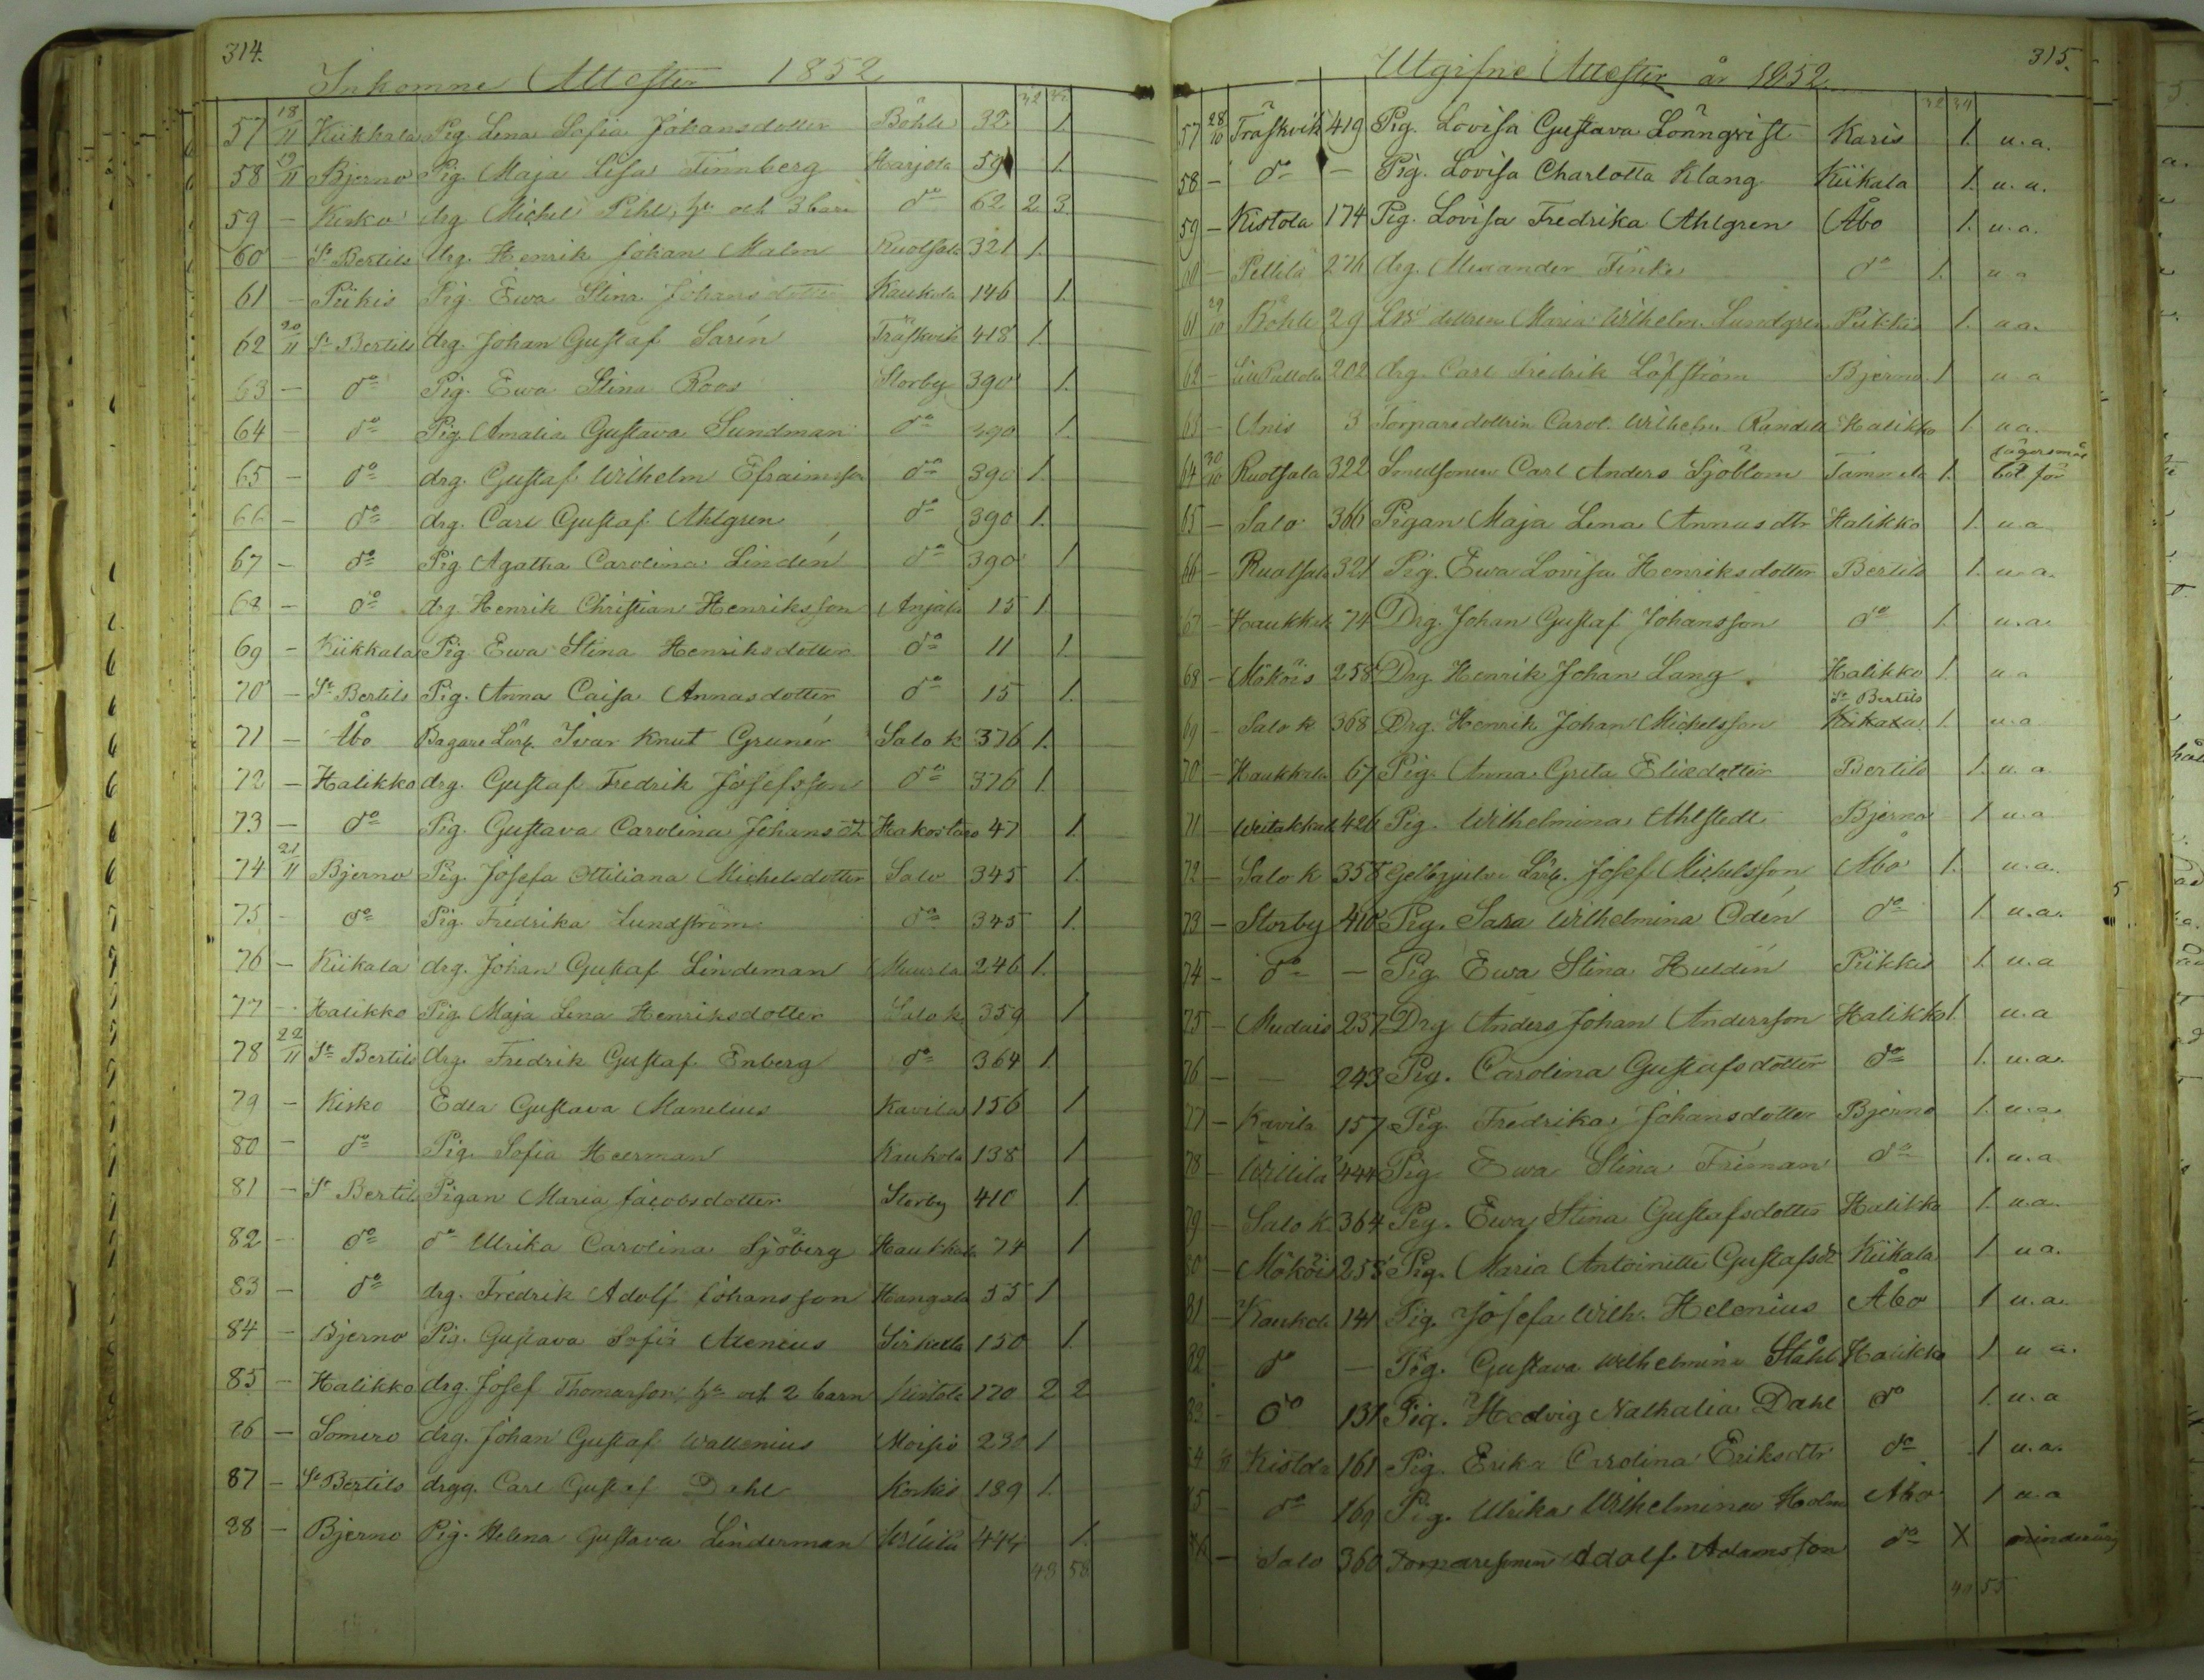 314.
Inkomne Attester 1852
32 32
57 18/11 Kiikkala Pig. Lena Sofia Johansdotter Böhle 32 1.
58 19/11 Bjerno Pig. Maja Lisa Finnberg Harjola 59 1.
59 - Kisko drg Michel Pihl, hu och 3 barn do 62 2. 3.
60 - St Bertils drg. Henrik Johan Malm Ruotsala 321 1.
61 - Piikis Pig. Ewa Stina Johansdotter Kaukola 146 1.
62 20/11 St Bertils drg. Johan Gustaf Sarén Träskvik 418 1.
63 - do Pig. Ewa Stina Roos Storby 390 1.
64 - do Pig. Amalia Gustava Sundman do 390 1.
65 - do drg. Gustaf Wilhelm Efraimsson do 390 1.
66 - do drg. Carl Gustaf Ahlgren do 390 1.
67 - do Pig Agatha Carolina Lindén do 390 1
68 - do drg Henrik Christian Henriksson Anjala 15 1.
69 - Kiikkala Pig Ewa Stina Henriksdotter do 11 1.
70 - St Bertils Pig. Anna Caisa Annasdotter do 15 1.
71 - Åbo Bagare Lärl. Ivar Knut Grunér Salo k 376 1.
72 - Halikko drg. Gustaf Fredrik Josefsson do 376 1
73 - do Pig. Gustava Carolina Johansdt Hakostaro 47 1
74 21/11 Bjerno Pig. Josefa Ottiliana Michelsdotter Salo 345 1.
75 - do Pig. Fredrika Lundström do 345 1.
76 - Kiikala drg. Johan Gustaf Lindeman Muurla 246 1.
77 - Halikko Pig. Maja Lena Henriksdotter Salo k 359 1
78 22/11 St Bertils drg. Fredrik Gustaf Enberg do 364 1.
79 - Kisko Edla Gustava Manelius Kavila 156 1
80 - do Pig. Sofia Heerman Kaukola 138 1
81 - St Bertils Pigan Maria Jacobsdotter Storby 410 1.
82 - do do Ulrika Carolina Sjöberg Haukkala 74 1
83 - do drg. Fredrik Adolf Johansson Hangala 55 1
84 - Bjerno Pig. Gustava Sofia Alenius 150 1.
85 - Halikko drg. Josef Thomasson, hu och 2 barn Kistola 170 2 2
86 - Somero drg. Johan Gustaf Wallenius Moisio 230 1
87 - St Bertils drgg. Carl Gustaf Dahl Korkis 189 1.
88 - Bjerno Pig. Helena Gustava Linderman Willilä 444 1.
49 58
315.
Utgifne Attester år 1852.
32 34
57 28/10 Träskvik 419 Pig. Lovisa Gustava Lönngvist Karis 1. u.a.
58 - do - Pig. Lovisa Charlotta Klang Kiikala 1. u.a.
59 - Kistola 174 Pig. Lovisa Fredrika Ahlgren Åbo 1. u.a.
60 - Pettilä 276 drg. Alexander Finke do 1. u a
61 29/10 Böhle 29 dottren Maria Wilhelm. Lundgren Piikkis 1. u a.
62 - 202 drg. Carl Fredrik Löfström Bjerno 1 u a
63 - Anis 3 Torparedottrin Carol. Wilhelm Randell Halikko 1 u a.
64 30/10 Ruotsala 322 Smedsonen Carl Anders Sjöblom Tammela 1.
65 - Salo 366 Pigan Maja Lena Annasdtr Halikko 1. u.a
66 - Ruotsala 321 Pig. Ewa Lovisa Henriksdotter Bertils 1. u.a.
67 - Haukkala 74 Drg. Johan Gustaf Johansson do 1. u.a.
68 - Mököis 258 Drg. Henrik Johan Lang Halikko 1. u.a
St Bertils
69 - Salo k 368 Drg. Henrik Johan Michelsson 1. u.a
70 - Haukkala 67 Pig. Anna Greta Eliedotter Bertils 1. u.a
71 - 426 Pig. Wilhelmina Ahlstedt Bjerno 1 u.a
72 - Salo k 358 Gelbgjutare Lärl. Josef Michelsson Åbo 1. u.a.
73 - Storby 410 Pig. Sara Wilhelmina Odén do 1 u.a.
74 - do - Pig Ewa Stina Huldin Piikkis 1. u.a
75 - Mudais 237 Drg Anders Johan Andersson Halikko 1 u.a
76 - - 243 Pig. Carolina Gustafsdotter do 1. u.a.
77 - Kavila 157 Pig. Fredrika Johansdotter Bjerno 1. u.a.
78 - Willilä 444 Pig Ewa Stina Friman do 1. u.a
79 - Salo k 364 Pig. Ewa Stina Gustafsdotter Halikko 1 u.a.
80 - Mököis 258 Pig. Maria Antoinette Gustafsdt Kiikala 1 u a.
81 - Kaukola 141 Pig. Josefa Wilh. Helenius Åbo 1 u.a.
82 - do - Pig. Gustava Wilhelmina Ståhl Halikko 1 u a.
83 - do 131 Pig. Hedvig Nathalia Dahl do 1. u.a
84 Kistola 161 Pig. Erika Carolina Eriksdtr do 1 u.a.
85 - do 169 Pig. Ulrika Wilhelmina Holm Åbo 1 u.a
- Salo 360 Torparesonen Adolf Adamsson do X minderårig
49 55